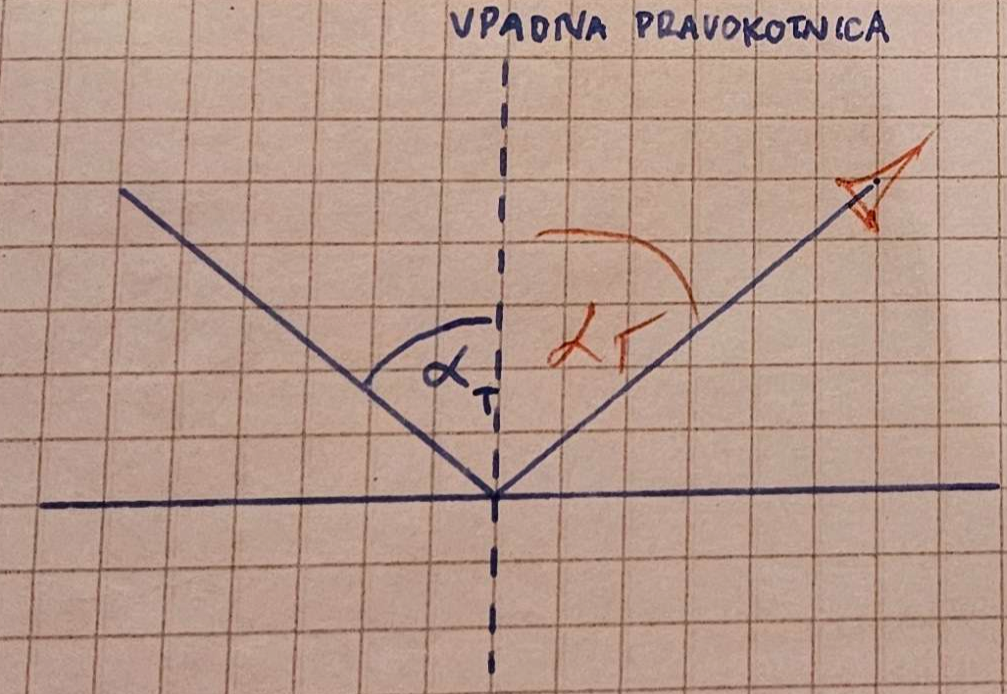 VPADNA PRAVOKOTNICA
α_T α_T